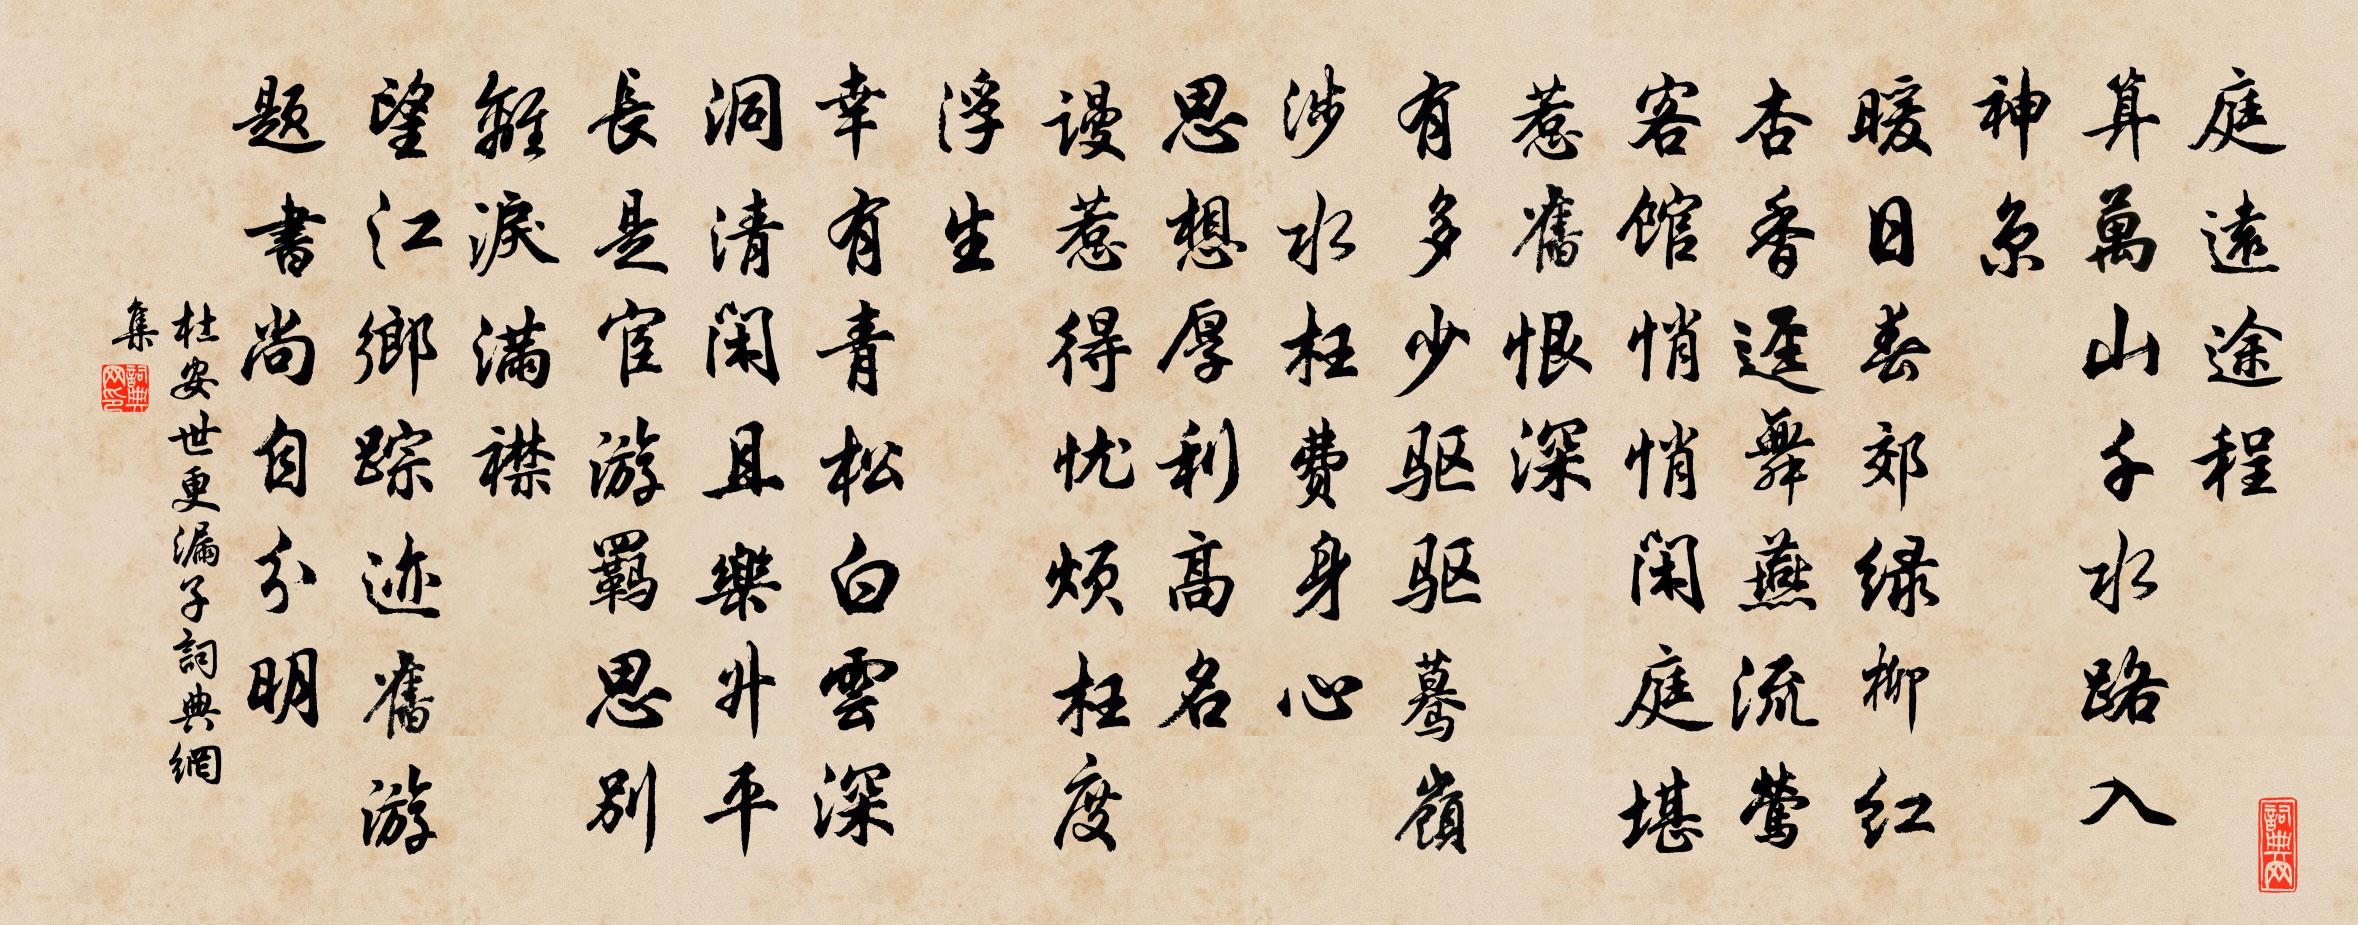 庭遠途程
算萬山千水路入
神京
暖日春郊绿柳红
杏香迳舞燕流莺
客馆悄悄闲庭堪
惹舊恨深
有多少驱驱蓦嶺
涉水枉费身心
思想厚利高名
谩惹得忧烦枉度
浮生
幸有青松白雲深
洞清闲且樂升平
長是宦游羁思别
離淚满襟
望江鄉踪迹舊游
题書尚自分明
杜安世更漏子詞典網
集
詞典网印
詞典网